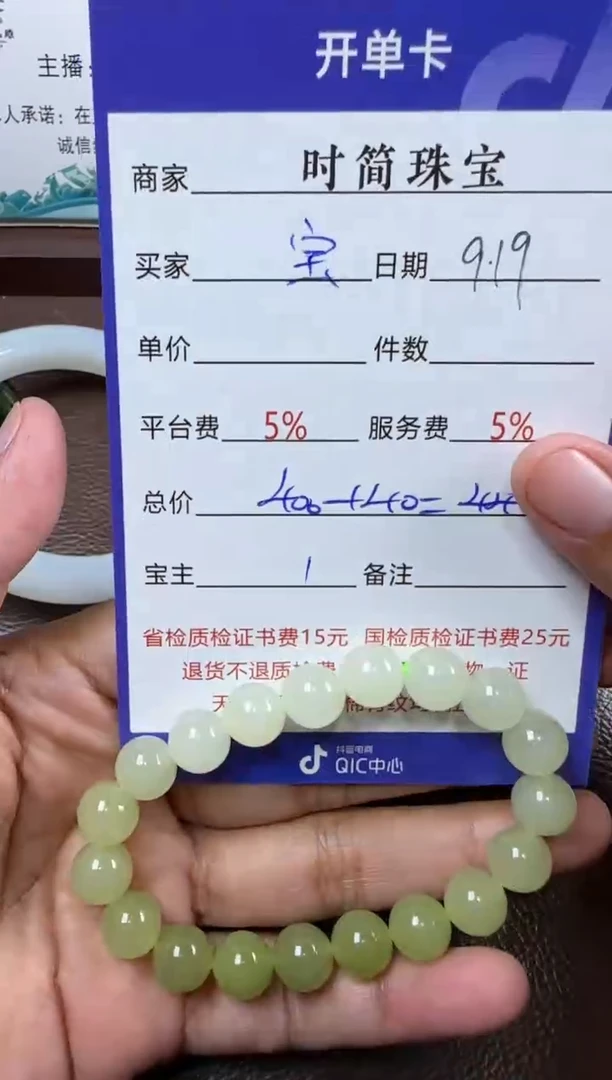 主播:
人承诺: 在
诚信
开单卡
商家 时简珠宝
买家 宝 日期 9.19
单价 件数
平台费 5% 服务费 5%
总价 400+40=44
宝主 1 备注
省检质检证书费15元 国检质检证书费25元
退货不退质 费 物 证
天
抖音电商
QIC中心